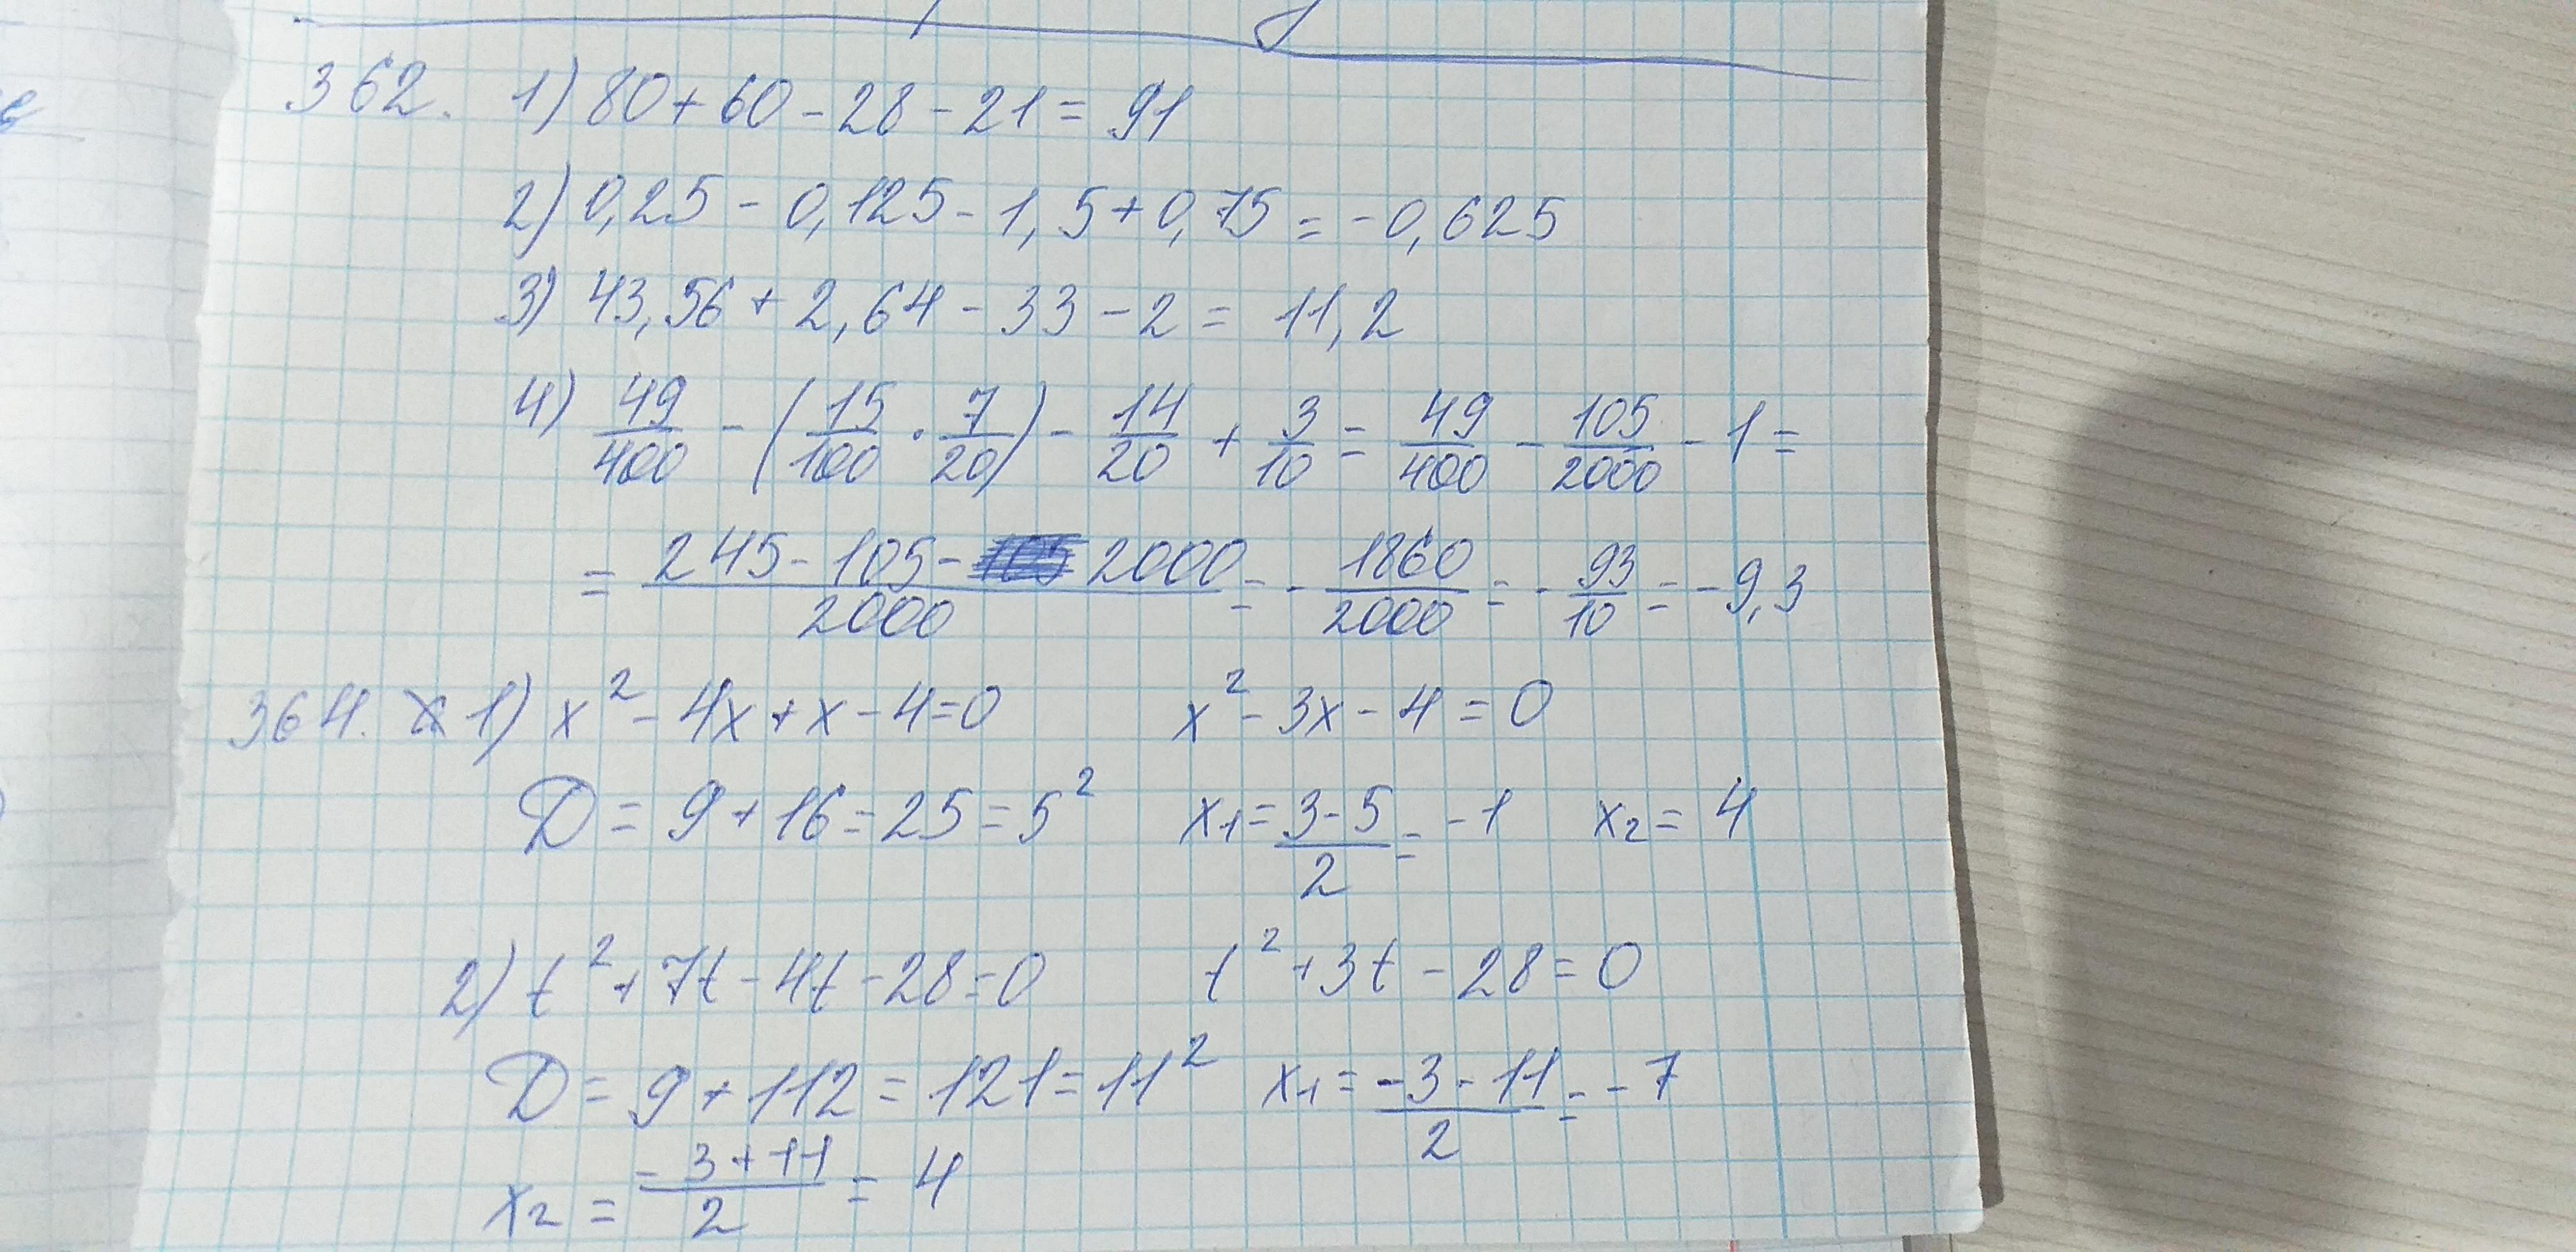 362. 1) 80 + 60 - 28 - 21 = 91
2) 0,25 - 0,125 - 1,5 + 0,75 = -0,625
3) 43,56 + 2,64 - 33 - 2 = 11,2
4) 49/400 - (15/100 · 7/20) - 14/20 + 3/10 = 49/400 - 105/2000 - 1 =
= (245 - 105 - 2000)/2000 = - 1860/2000 = - 93/10 = -9,3
364. 1) x² - 4x + x - 4 = 0 x² - 3x - 4 = 0
D = 9 + 16 = 25 = 5² x₁ = (3 - 5)/2 = -1 x₂ = 4
2) t² + 7t - 4t - 28 = 0 t² + 3t - 28 = 0
D = 9 + 112 = 121 = 11² x₁ = (-3 - 11)/2 = -7
x₂ = (-3 + 11)/2 = 4